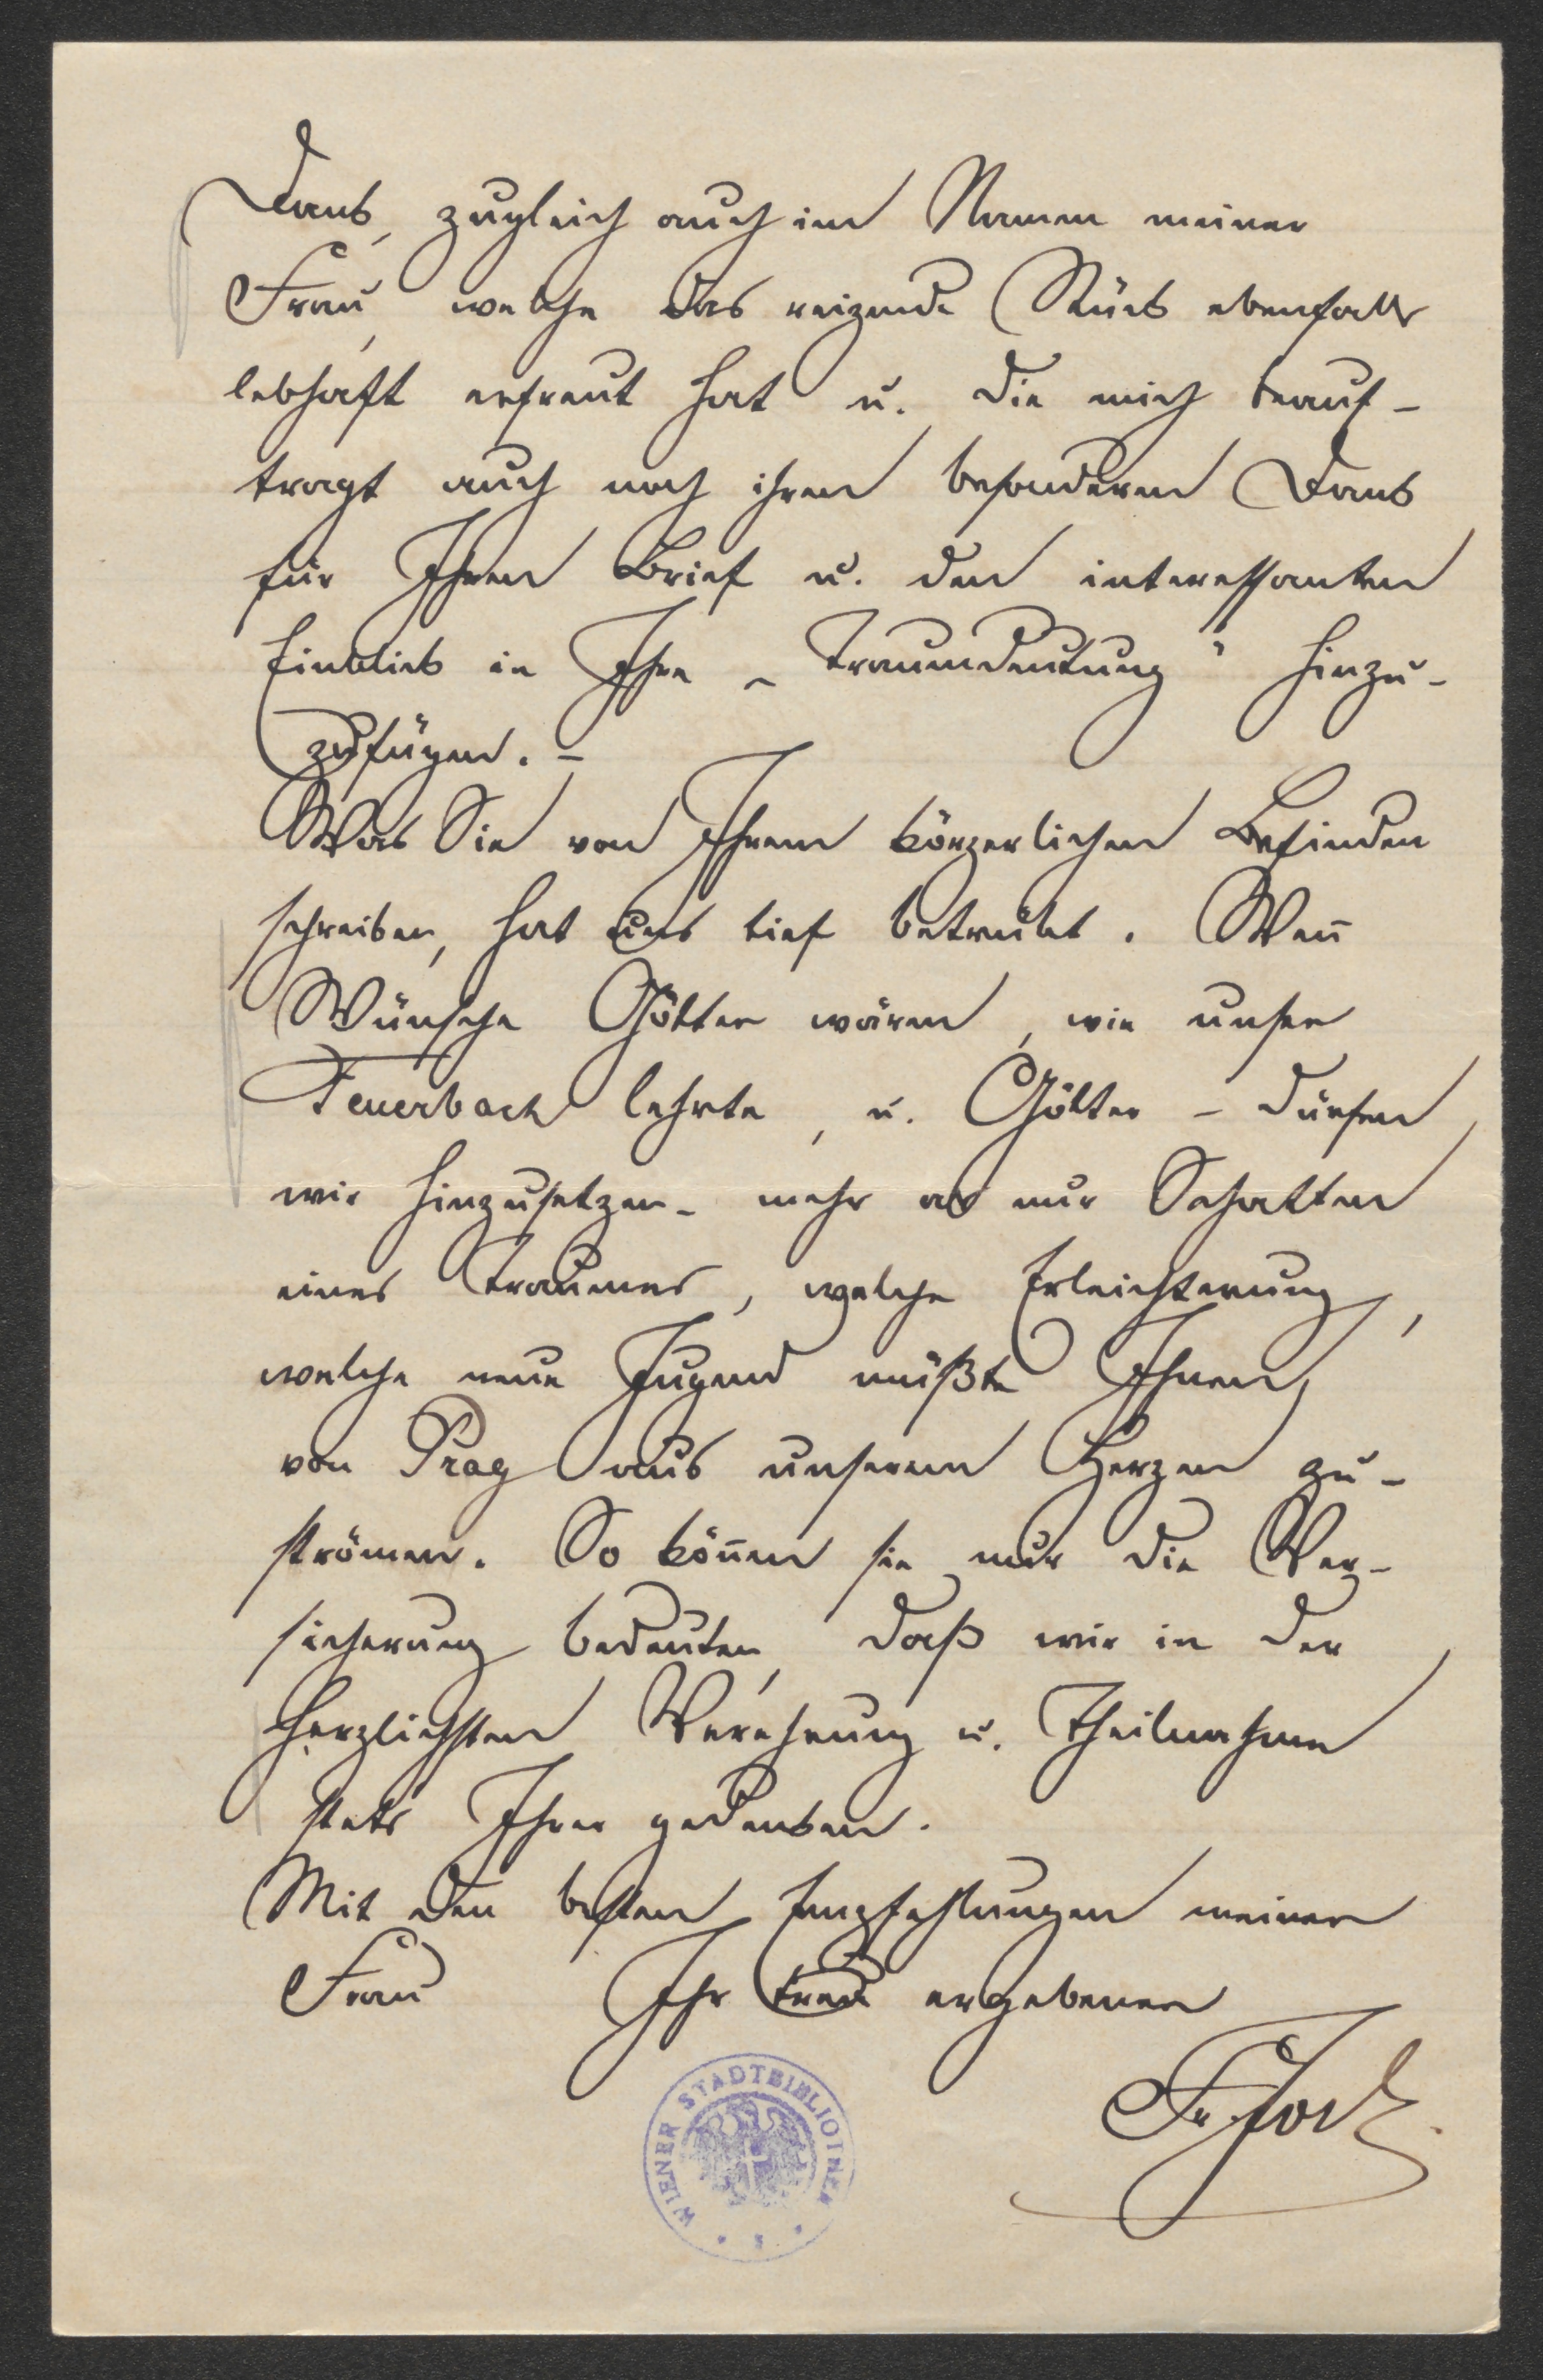 Dank, zugleich auch im Namen meiner
Frau, welche das reizende Stück ebenfalls
lebhaft erfreut hat u. die mich beauf-
tragt auch noch ihren besonderen Dank
für Ihren Brief u. den interessanten
Einblick in Ihre „Traumdeutung" hinzu-
zufügen. –
Was Sie von Ihrem körperlichen Befinden
schreiben, hat uns tief betrübt. Wen̅
Wünsche Götter wären, wie unser
Feuerbach lehrte, u. Götter – dürfen
wir hinzusetzen – mehr als nur Schatten
eines Traumes, welche Erleichterung,
welche neue Jugend müßte Ihnen,
von Prag aus unserem Herzen zu-
strömen. So kön̅en sie nur die Ver-
sicherung bedeuten, daß wir in der
herzlichsten Verehrung u. Theilnahme
stets Ihrer gedenken.
Mit den besten Empfehlungen meiner
Frau Ihr treu ergebener
Fr. Jodl
WIENER STADTBIBLIOTHEK